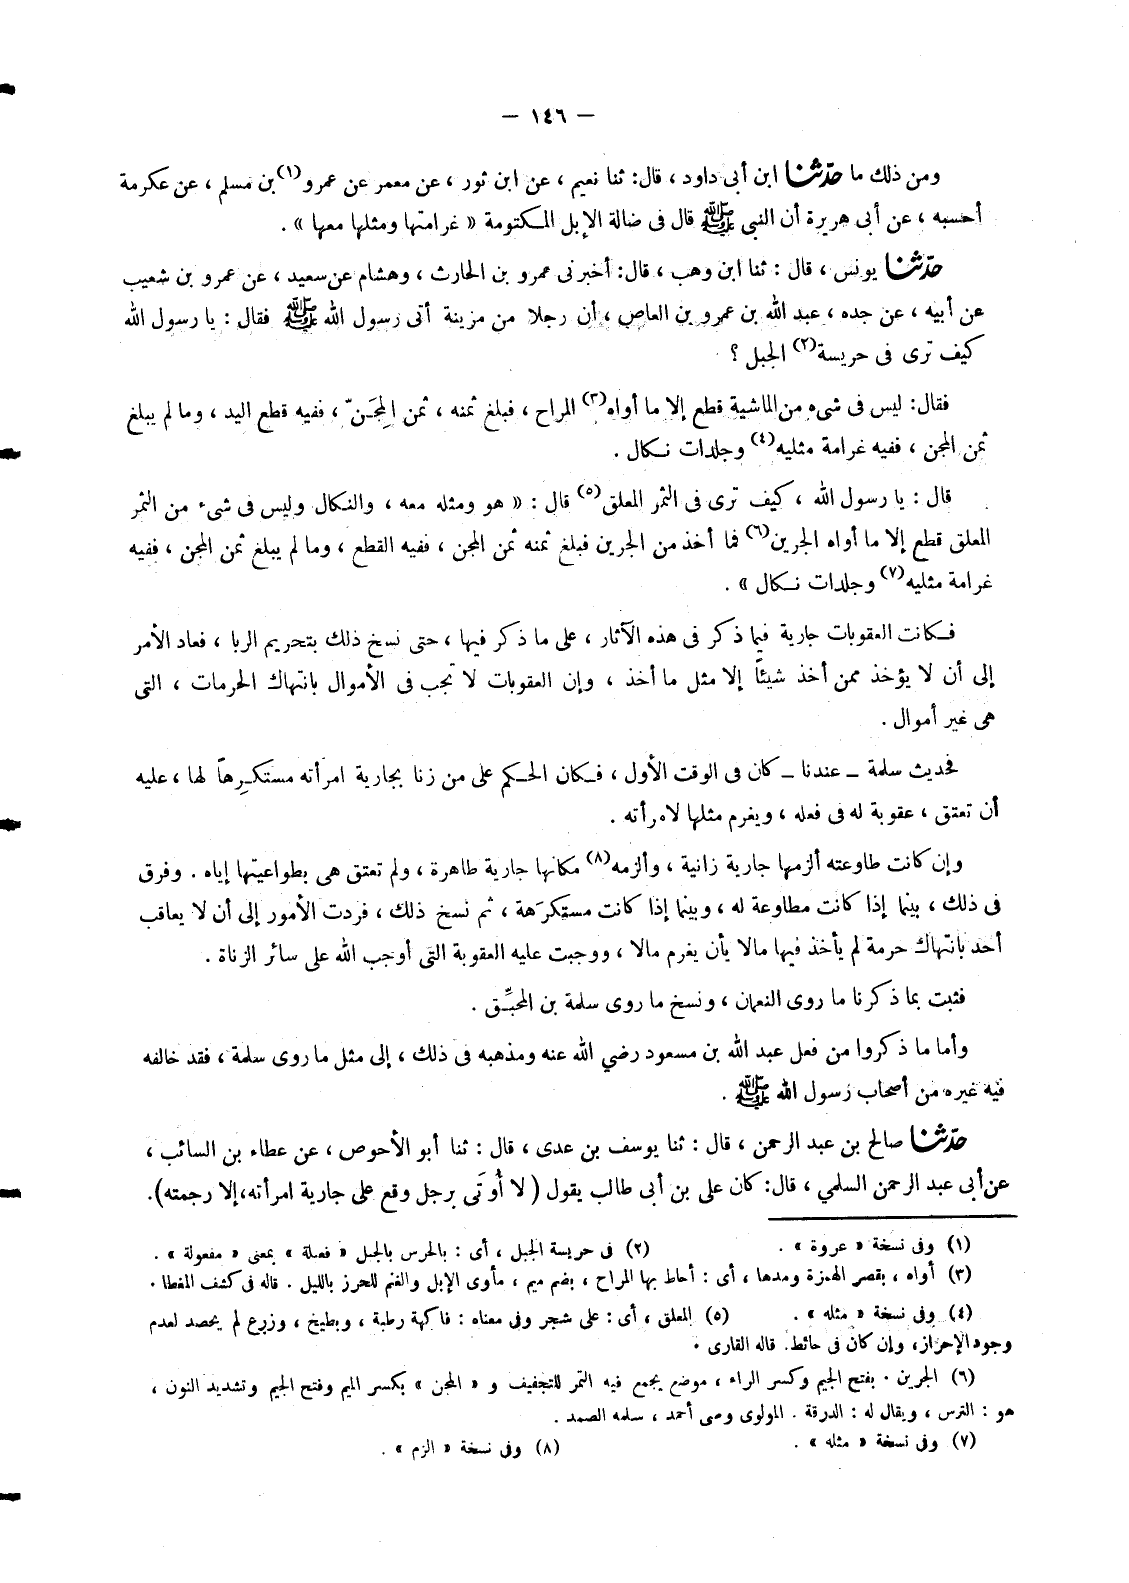 — ١٤٦ —
ومن ذلك ما حدّثنا ابن أبى داود ، قال: ثنا نعيم ، عن ابن ثور ، عن معمر عن عمرو(١)بن مسلم ، عن عكرمة
أحسبه ، عن أبى هريرة أن النبى ﷺ قال فى ضالة الإبل المكتومة « غرامتها ومثلها معها » .
حدّثنا يونس ، قال : ثنا ابن وهب ، قال: أخبرنى عمرو بن الحارث ، وهشام عن سعيد ، عن عمرو بن شعيب
عن أبيه ، عن جده ، عبد الله بن عمرو بن العاص ، أن رجلا من مزينة أتى رسول الله ﷺ فقال : يا رسول الله
كيف ترى فى حريسة(٢) الجبل ؟
فقال: ليس فى شىء من الماشية قطع إلا ما أواه(٣) المراح ، فبلغ ثمنه ، ثمن المِجَنّ ، ففيه قطع اليد ، وما لم يبلغ
ثمن المجن ، ففيه غرامة مثليه(٤) وجلدات نكال .
قال : يا رسول الله ، كيف ترى فى الثمر المعلق(٥) قال : « هو ومثله معه ، والنكال وليس فى شىء من الثمر
المعلق قطع إلا ما أواه الجرين(٦) فما أخذ من الجرين فبلغ ثمنه ثمن المجن ، ففيه القطع ، وما لم يبلغ ثمن المجن ، ففيه
غرامة مثليه(٧) وجلدات نكال » .
فكانت العقوبات جارية فيما ذكر فى هذه الآثار ، على ما ذكر فيها ، حتى نسخ ذلك بتحريم الربا ، فعاد الأمر
إلى أن لا يؤخذ ممن أخذ شيئاً إلا مثل ما أخذ ، وإن العقوبات لا تجب فى الأموال بانتهاك الحرمات ، التى
هى غير أموال .
فحديث سلمة ــ عندنا ــ كان فى الوقت الأول ، فكان الحكم على من زنا بجارية امرأته مستكرِهاً لها ، عليه
أن تعتق ، عقوبة له فى فعله ، ويغرم مثلها لامرأته .
وإن كانت طاوعته ألزمها جارية زانية ، وألزمه(٨) مكانها جارية طاهرة ، ولم تعتق هى بطواعيتها إياه . وفرق
فى ذلك ، بينما إذا كانت مطاوعة له ، وبينما إذا كانت مستكرَهة ، ثم نسخ ذلك ، فردت الأمور إلى أن لا يعاقب
أحد بانتهاك حرمة لم يأخذ فيها مالا يأن يغرم مالا ، ووجبت عليه العقوبة التى أوجب الله على سائر الزناة .
فثبت بما ذكرنا ما روى النعمان ، ونسخ ما روى سلمة بن المحبِّق .
وأما ما ذكروا من فعل عبد الله بن مسعود رضي الله عنه ومذهبه فى ذلك ، إلى مثل ما روى سلمة ، فقد خالفه
فيه غيره من أصحاب رسول الله ﷺ .
حدّثنا صالح بن عبد الرحمن ، قال : ثنا يوسف بن عدى ، قال : ثنا أبو الأحوص ، عن عطاء بن السائب ،
عن أبى عبد الرحمن السلمي ، قال: كان على بن أبى طالب يقول ( لا أُوتَى برجل وقع على جارية امرأته، إلا رجمته).
(١) وفى نسخة « عروة » . (٢) فى حريسة الجبل ، أى : بالحرس بالجبل « فعيلة » بمعنى « مفعولة » .
(٣) أواه ، بقصر الهمزة ومدها ، أى : أحاط بها المراح ، بضم ميم ، مأوى الإبل والغنم للحرز بالليل . قاله فى كشف المغطا .
(٤) وفى نسخة « مثله » . (٥) المعلق ، أى : على شجر وفى معناه : فاكهة رطبة ، وبطيخ ، وزرع لم يحصد لعدم
وجود الإحراز، وإن كان فى حائط. قاله القارى .
(٦) الجرين . بفتح الجيم وكسر الراء ، موضع يجمع فيه التمر للتجفيف و « المجن » بكسر الميم وفتح الجيم وتشديد النون ،
هو : الترس ، ويقال له : الدرقة . المولوى وصى أحمد ، سلمه الصمد .
(٧) وفى نسخة « مثله » . (٨) وفى نسخة « الزم » .